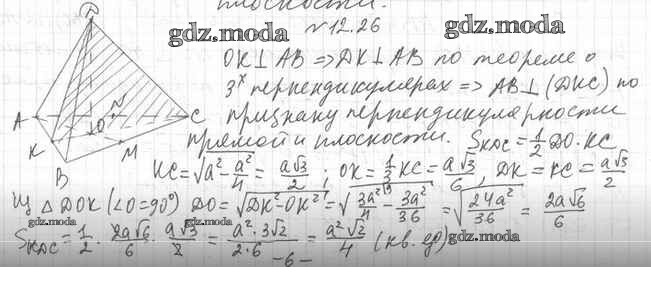 плоскости.
№12.26
gdz.moda
gdz.moda
D
OK⊥AB ⇒ DK⊥AB по теореме о
3ˣ перпендикулярах ⇒ AB⊥(DKC) по
признаку перпендикулярности
прямой и плоскости. S_KDC = 1/2 DO·KC
gdz.moda
gdz.moda
A
N
O
C
K
M
B
KC = √(a² - a²/4) = a√3/2 ; OK = 1/3 KC = a√3/6, DK = KC = a√3/2
Из △DOK (∠O=90°) DO = √(DK² - OK²) = √(3a²/4 - 3a²/36) = √(24a²/36) = 2a√6/6
gdz.moda
gdz.moda
gdz.moda
S_KDC = 1/2 · 2a√6/6 · a√3/2 = a²·3√2/2·6 = a²√2/4 (кв. ед)
-6-